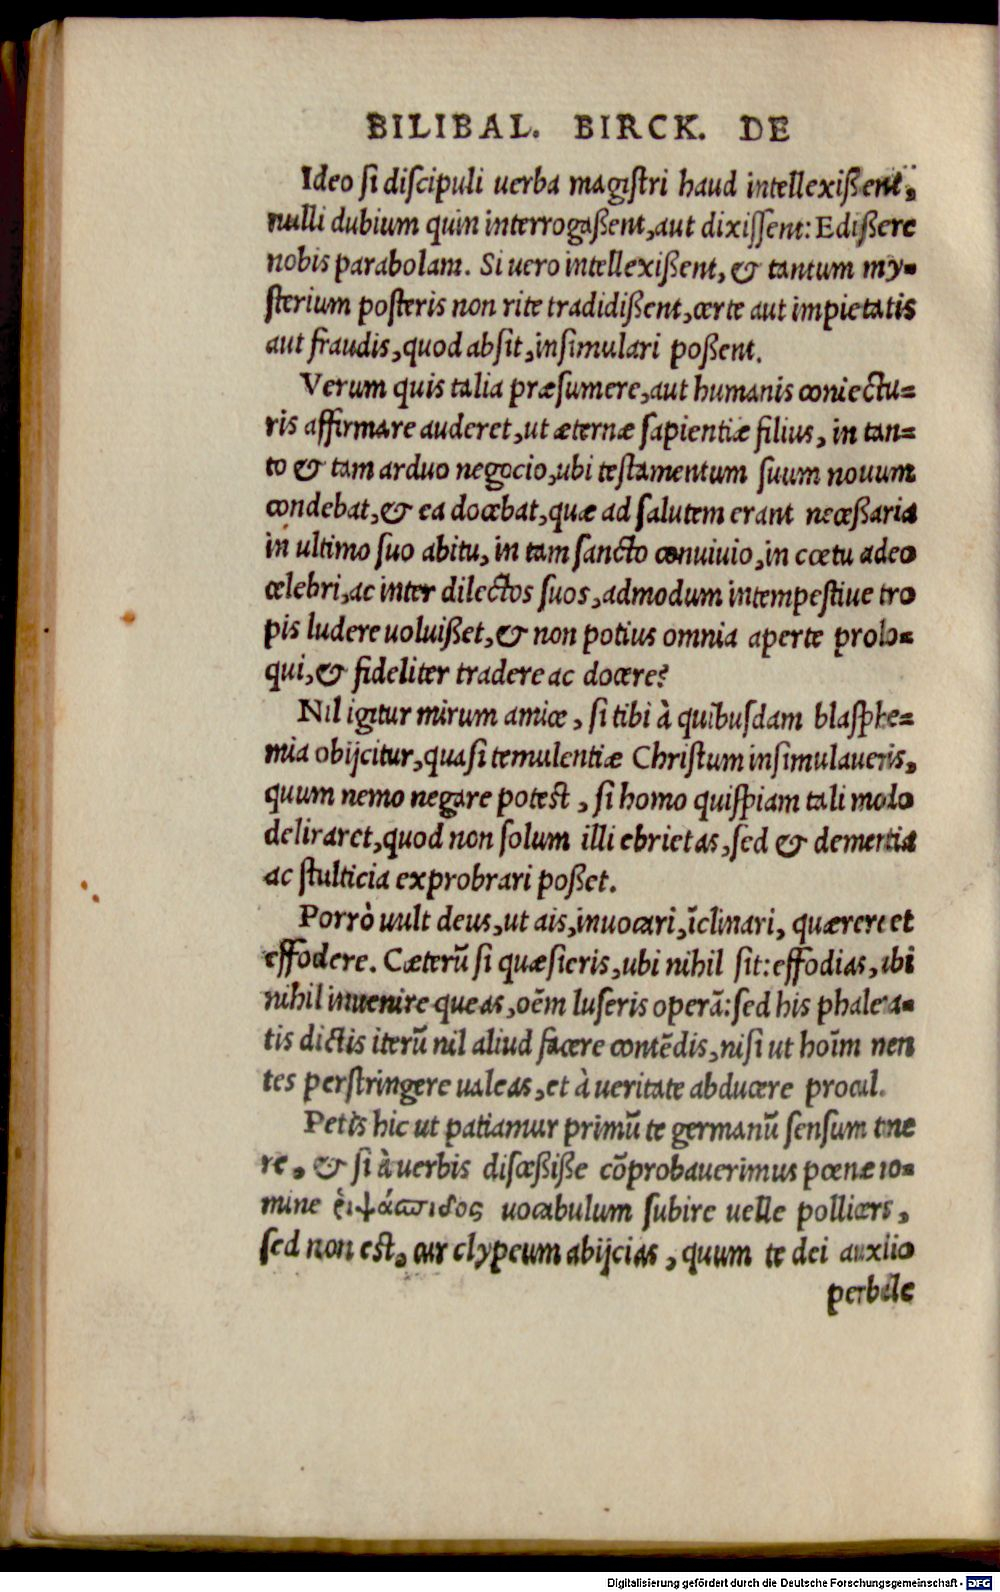 BILIBAL. BIRCK. DE
Ideo si discipuli uerba magistri haud intellexißent,
nulli dubium quin interrogaßent, aut dixissent: Edißere
nobis parabolam. Si uero intellexißent, & tantum my-
sterium posteris non rite tradidißent, certe aut impietatis
aut fraudis, quod absit, insimulari poßent.
Verum quis talia præsumere, aut humanis coniectu-
ris affirmare auderet, ut æternæ sapientiæ filius, in tan-
to & tam arduo negocio, ubi testamentum suum nouum
condebat, & ea docebat, quæ ad salutem erant neceßaria
in ultimo suo abitu, in tam sancto conuiuio, in cœtu adeo
celebri, ac inter dilectos suos, admodum intempestiue tro
pis ludere uoluißet, & non potius omnia aperte prolo-
qui, & fideliter tradere ac docere?
Nil igitur mirum amice, si tibi à quibusdam blasphe-
mia obijcitur, quasi temulentiæ Christum insimulaueris,
quum nemo negare potest, si homo quispiam tali modo
deliraret, quod non solum illi ebrietas, sed & dementia
ac stulticia exprobrari poßet.
Porrò uult deus, ut ais, inuocari, ĩclinari, quærere et
effodere. Cæterũ si quæsieris, ubi nihil sit: effodias, ubi
nihil inuenire queas, oẽm luseris operã: sed his phalera-
tis dictis iterũ nil aliud facere contẽdis, nisi ut hoĩm men
tes perstringere ualeas, et à ueritate abducere procul.
Petis hic ut patiamur primũ te germanũ sensum tue
re, & si à uerbis disceßiße cõprobauerimus pœnæ no-
mine ῥιψάσπιδος uocabulum subire uelle polliceris,
sed non est, cur clypeum abijcias, quum te dei auxilio
perbelle
Digitalisierung gefördert durch die Deutsche Forschungsgemeinschaft - DFG